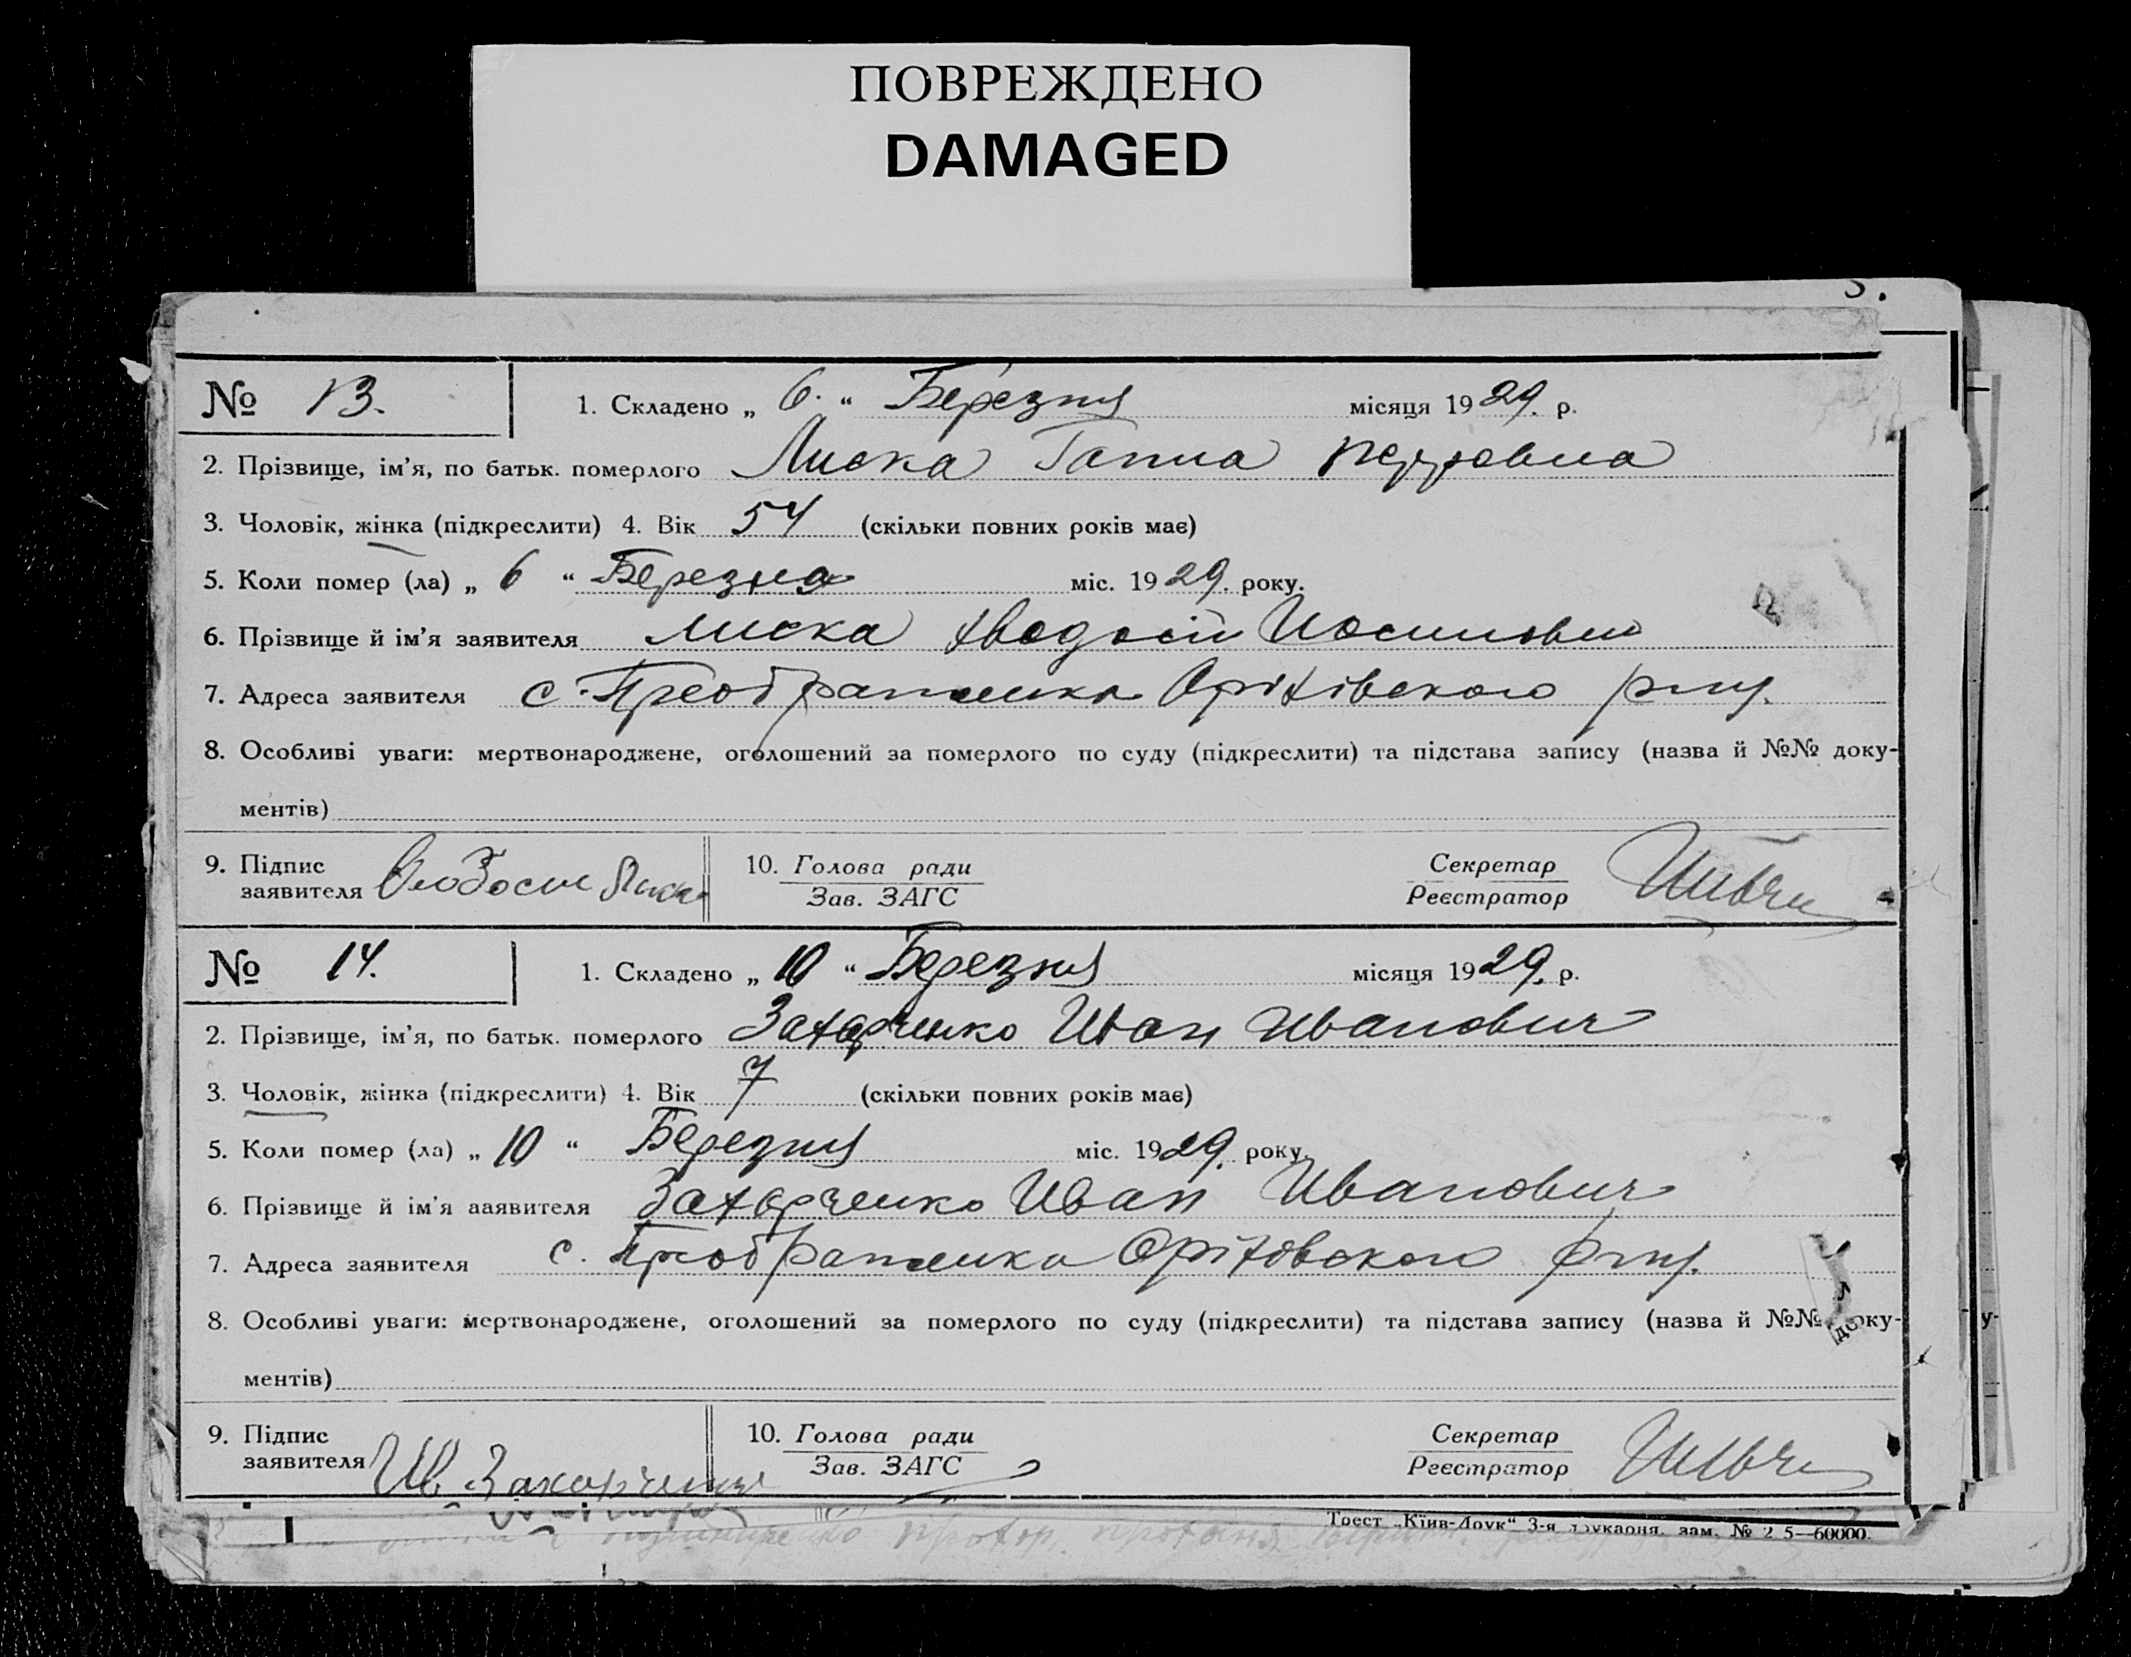 ПОВРЕЖДЕНО
DAMAGED
№ 13. 1. Складено „ 6. “ Березня місяця 1929. р.
2. Прізвище, ім’я, по батьк. померлого Лиска Ганна Петровна
3. Чоловік, жінка (підкреслити) 4. Вік 54 (скільки повних років має)
5. Коли помер (ла) „ 6 “ Березня міс. 1929. року.
6. Прізвище й ім’я заявителя Лиска Хведосій Иосипович
7. Адреса заявителя с. Преображенка Оріхівского
8. Особливі уваги: мертвонароджене, оголошений за померлого по суду (підкреслити) та підстава запису (назва й №№ доку-
ментів)
9. Підпис 10. Голова ради Секретар
заявителя Зав. ЗАГС Реєстратор
№ 14. 1. Складено „ 10 “ Березня місяця 1929. р.
2. Прізвище, ім’я, по батьк. померлого Захарченко Иван Иванович
3. Чоловік, жінка (підкреслити) 4. Вік 7 (скільки повних років має)
5. Коли помер (ла) „ 10 “ Березня міс. 1929. року.
6. Прізвище й ім’яааявителя Захарченко Иван Иванович
7. Адреса заявителя с. Преображенка Оріховского
8. Особливі уваги: мертвонароджене, оголошений за померлого по суду (підкреслити) та підстава запису (назва й №№ доку-
ментів)
9. Підпис 10. Голова ради Секретар
заявителя Ив. Захарченко Зав. ЗАГС Реєстратор
Трест „Київ-Друк“ 3-я друкарня, зам. № 2 5—60000.